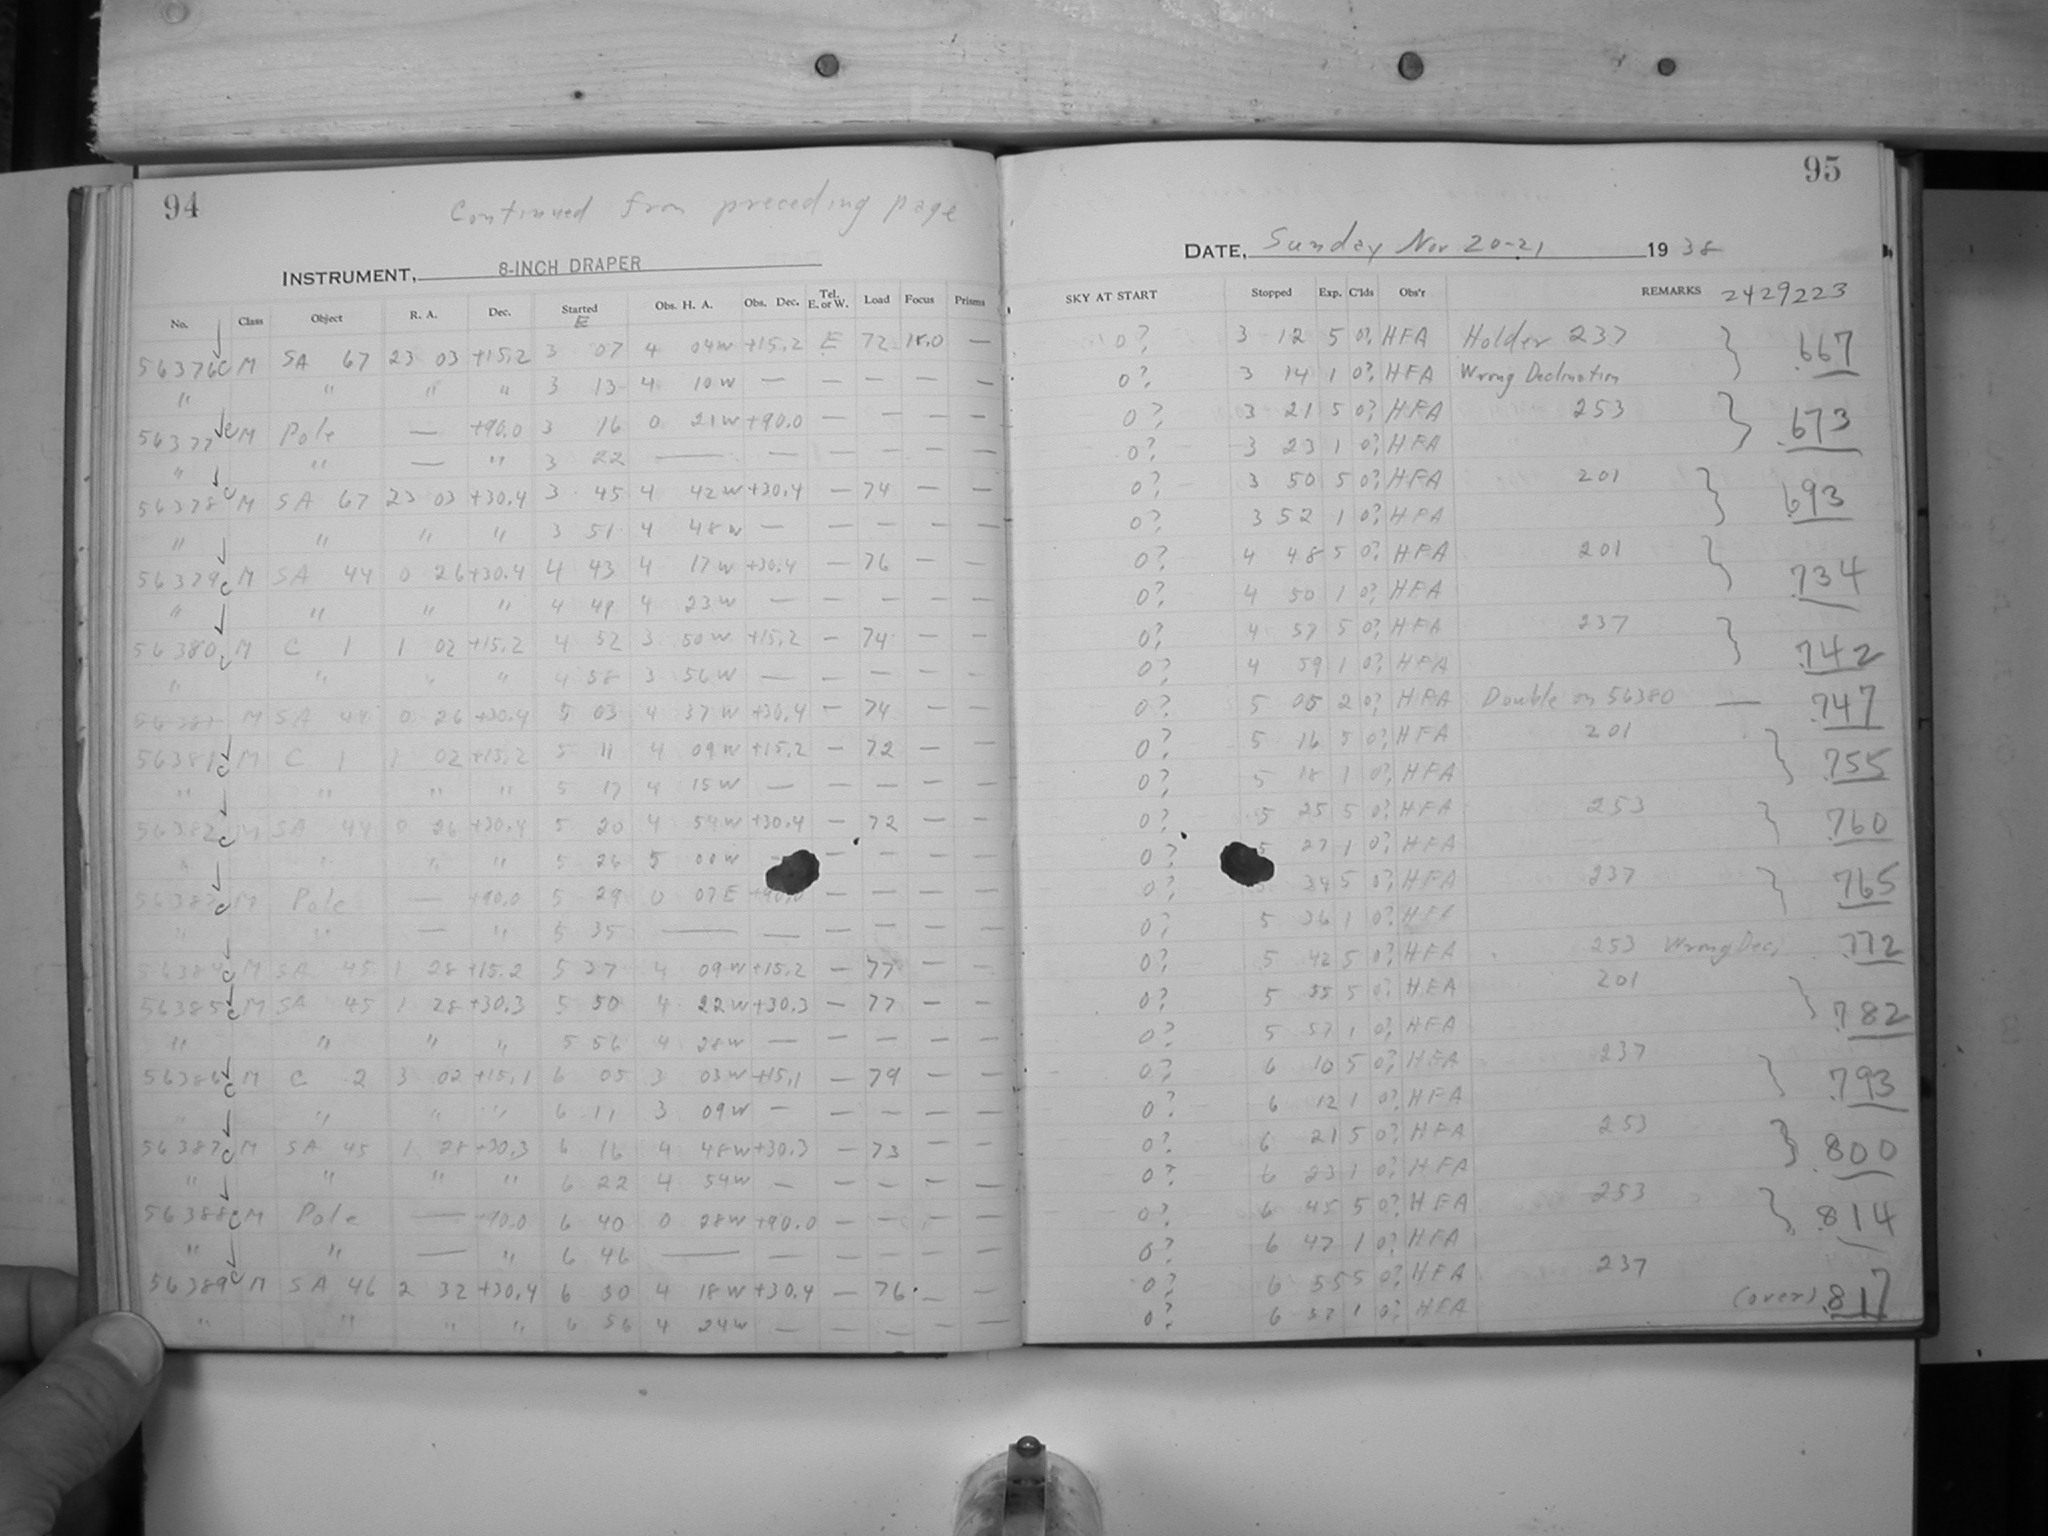 94
Continued from preceding page
INSTRUMENT, 8-INCH DRAPER
No. Class Object R. A. Dec. Started E Obs. H. A. Obs. Dec. Tel. E. or W. Load Focus Prisms
56376 C M SA 67 23 03 +15.2 3 07 4 04W +15.2 E 72 18.0 —
" " " " 3 13 4 10W — — — — —
56377 C M Pole — +90.0 3 16 0 21W +90.0 — — — —
" " — " 3 22 — — — — — —
56378 C M SA 67 23 03 +30.4 3 45 4 42W +30.4 — 74 — —
" " " " 3 51 4 48W — — — — —
56379 C M SA 44 0 26 +30.4 4 43 4 17W +30.4 — 76 — —
" " " " 4 49 4 23W — — — — —
56380 C M C 1 1 02 +15.2 4 52 3 50W +15.2 — 74 — —
" " " " 4 58 3 56W — — — — —
56381 M SA 44 0 26 +30.4 5 03 4 37W +30.4 — 74 — —
56381 C M C 1 1 02 +15.2 5 11 4 09W +15.2 — 72 — —
" " " " 5 17 4 15W — — — — —
56382 C M SA 44 0 26 +30.4 5 20 4 54W +30.4 — 72 — —
" " " " 5 26 5 00W — — — — —
56383 C M Pole — +90.0 5 29 0 07E +90.0 — — — —
" " — " 5 35 — — — — — —
56384 C M SA 45 1 28 +15.2 5 37 4 09W +15.2 — 77 — —
56385 C M SA 45 1 28 +30.3 5 50 4 22W +30.3 — 77 — —
" " " " 5 56 4 28W — — — — —
56386 C M C 2 3 02 +15.1 6 05 3 03W +15.1 — 79 — —
" " " " 6 11 3 09W — — — — —
56387 C M SA 45 1 28 +30.3 6 16 4 48W +30.3 — 73 — —
" " " " 6 22 4 54W — — — — —
56388 C M Pole — +90.0 6 40 0 28W +90.0 — — — —
" " — " 6 46 — — — — — —
56389 C M SA 46 2 32 +30.4 6 50 4 18W +30.4 — 76 — —
" " " " 6 56 4 24W — — — — —
95
DATE, Sunday Nov 20-21 1938
SKY AT START Stopped Exp. C'lds Obs'r REMARKS 2429223
0? 3 12 5 0? HFA Holder 237 .667
0? 3 14 1 0? HFA Wrong Declination
0? 3 21 5 0? HFA 253 .673
0? 3 23 1 0? HFA
0? 3 50 5 0? HFA 201 .693
0? 3 52 1 0? HFA
0? 4 48 5 0? HFA 201 .734
0? 4 50 1 0? HFA
0? 4 57 5 0? HFA 237 .742
0? 4 59 1 0? HFA
0? 5 05 2 0? HFA Double on 56380 — .747
0? 5 16 5 0? HFA 201 .755
0? 5 18 1 0? HFA
0? 5 25 5 0? HFA 253 .760
0? 5 27 1 0? HFA
0? 34 5 0? HFA 237 .765
0? 5 36 1 0? HFA
0? 5 42 5 0? HFA 253 Wrong Dec. .772
0? 5 55 5 0? HFA 201 .782
0? 5 57 1 0? HFA
0? 6 10 5 0? HFA 237 .793
0? 6 12 1 0? HFA
0? 6 21 5 0? HFA 253 .800
0? 6 23 1 0? HFA
0? 6 45 5 0? HFA 253 .814
0? 6 47 1 0? HFA
0? 6 55 5 0? HFA 237
0? 6 57 1 0? HFA (over) .817